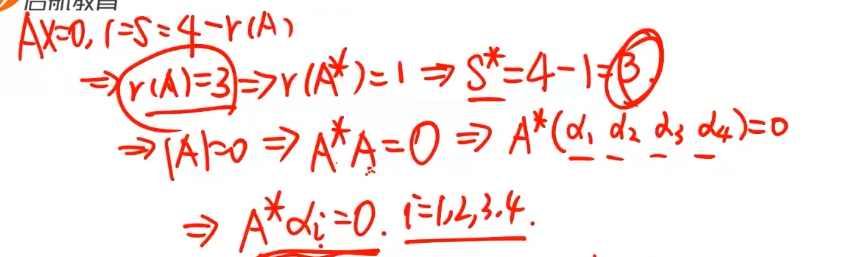 启航教育
AX=0, 1=S=4-r(A)
⇒ r(A)=3 ⇒ r(A*)=1 ⇒ S*=4-1=3.
⇒ |A|=0 ⇒ A*A=0 ⇒ A*(α₁ α₂ α₃ α₄)=0
⇒ A*αᵢ=0. i=1,2,3,4.